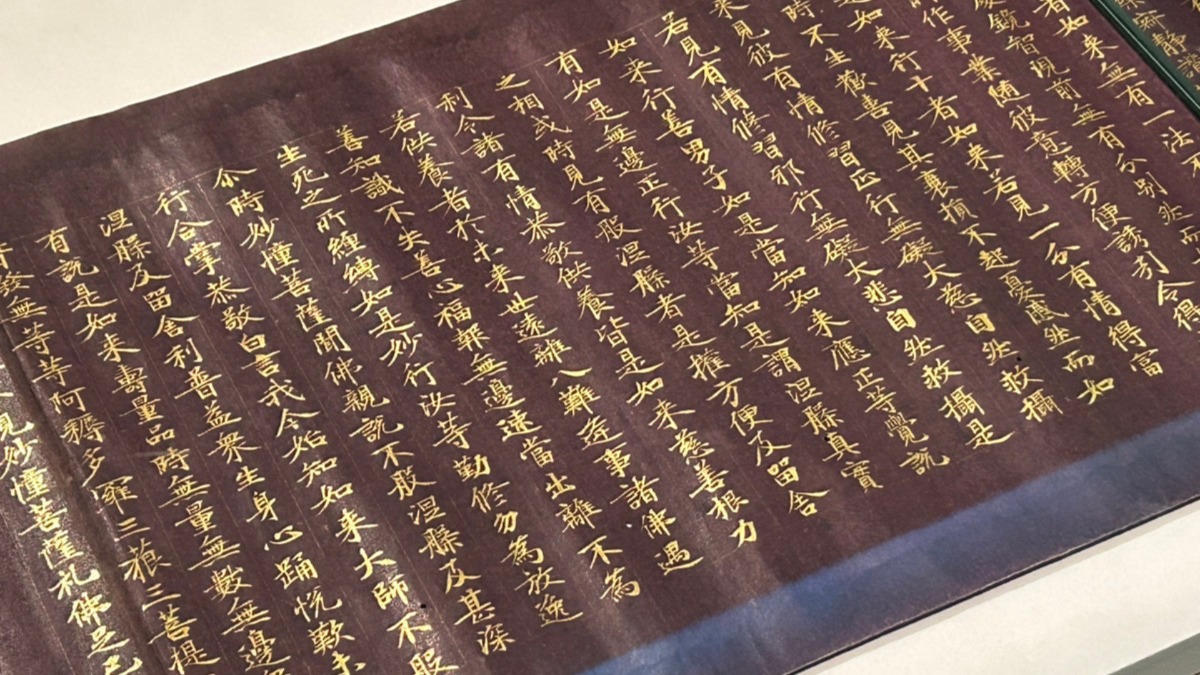 者如来無有一法不
處鏡智現前無有分別然而
作事業随彼意轉方便誘引令得
是如来行十者如来若見一分有情得富
時不生歡喜見其衰損不起憂慼然而如
来見彼有情修習正行無礙大慈自然救攝
若見有情修習邪行無礙大悲自然救攝是
如来行善男子如是當知如来應正等覺説
有如是無邊正行汝等當知是謂涅槃真實
之相或時見有般涅槃者是權方便及留舍
利令諸有情恭敬供養皆是如来慈善根力
若供養者於未来世遠離八難逢事諸佛遇
善知識不失善心福報無邊速當出離不為
生死之所纏縛如是妙行汝等勤修勿為放逸
尒時妙幢菩薩聞佛親説不般涅槃及甚深
行合掌恭敬白言我今始知如来大師不般
涅槃及留舍利普益衆生身心踊恱歎未
有説是如来壽量品時無量無數無邊
發無等等阿耨多羅三藐三菩提
見妙幢菩薩礼佛足已